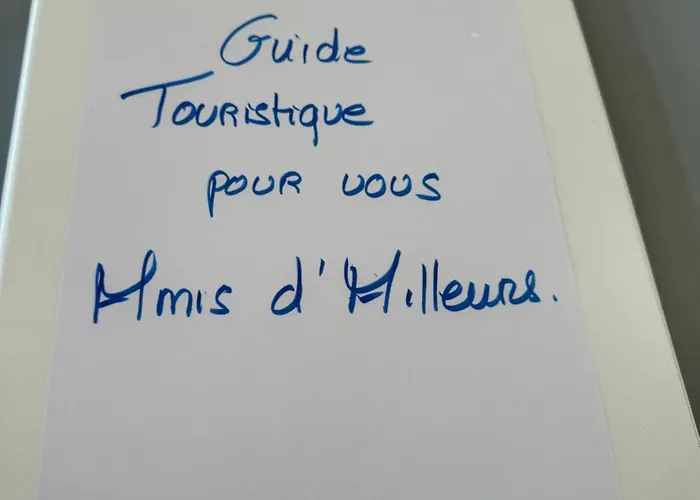 Guide
Touristique
pour vous
Amis d'Ailleurs.